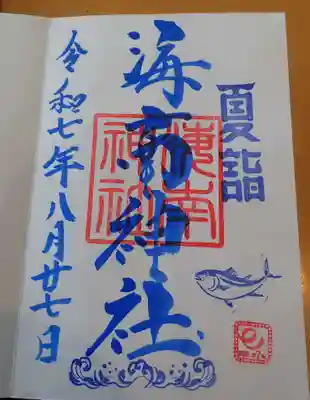 夏詣
海南神社
海南神社
令和七年八月廿七日